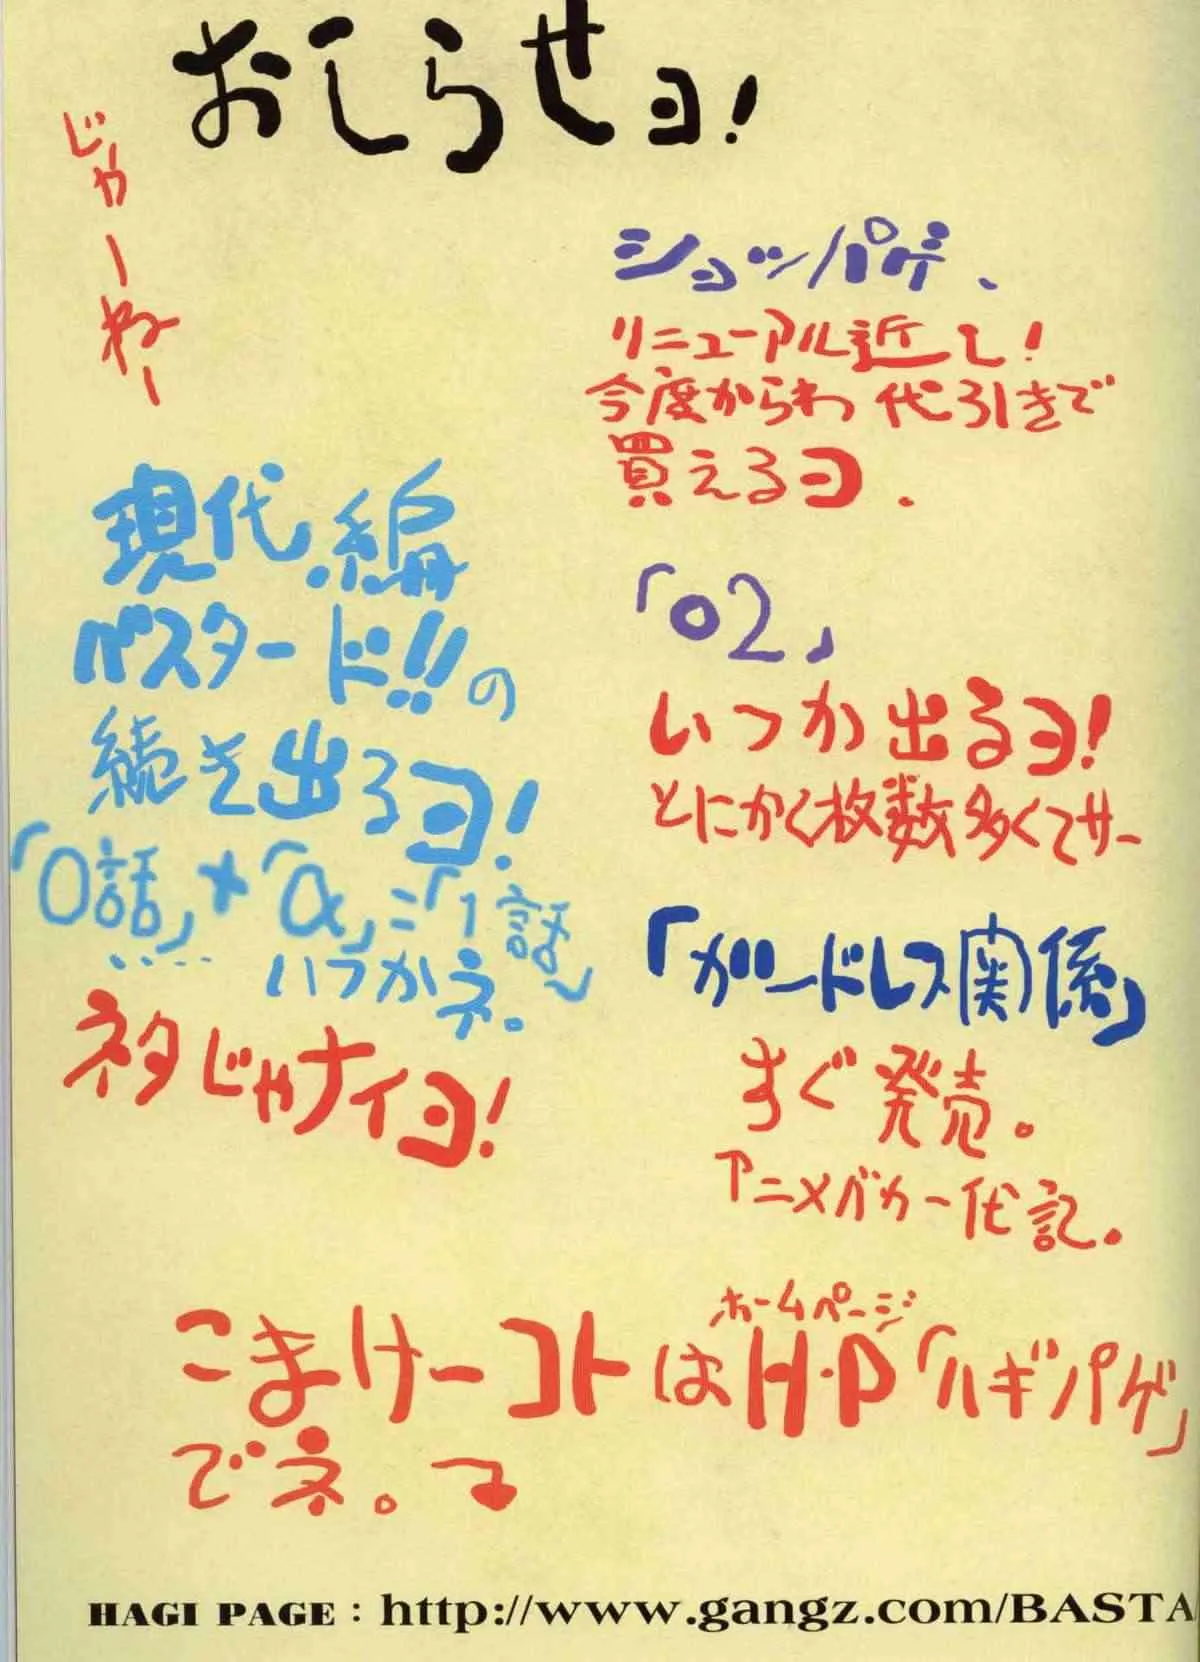 おしらせヨ!
ショッパゲ、
リニューアル近し!
今度からわ 代引きで
買えるヨ、
「02」
いつか出るヨ!
とにかく枚数多くてサー
「ガードレス関係」
すぐ発売。
アニメバカ一代記。
現代編
バスタード!!の
続き出るヨ!
「0話」+「α」=「1話〜」
……いつかネ。
ネタじゃナイヨ!
じゃーねー
ホームページ
こまけーコトはH・P「ハギパゲ」
でネ。
HAGI PAGE : http://www.gangz.com/BASTA